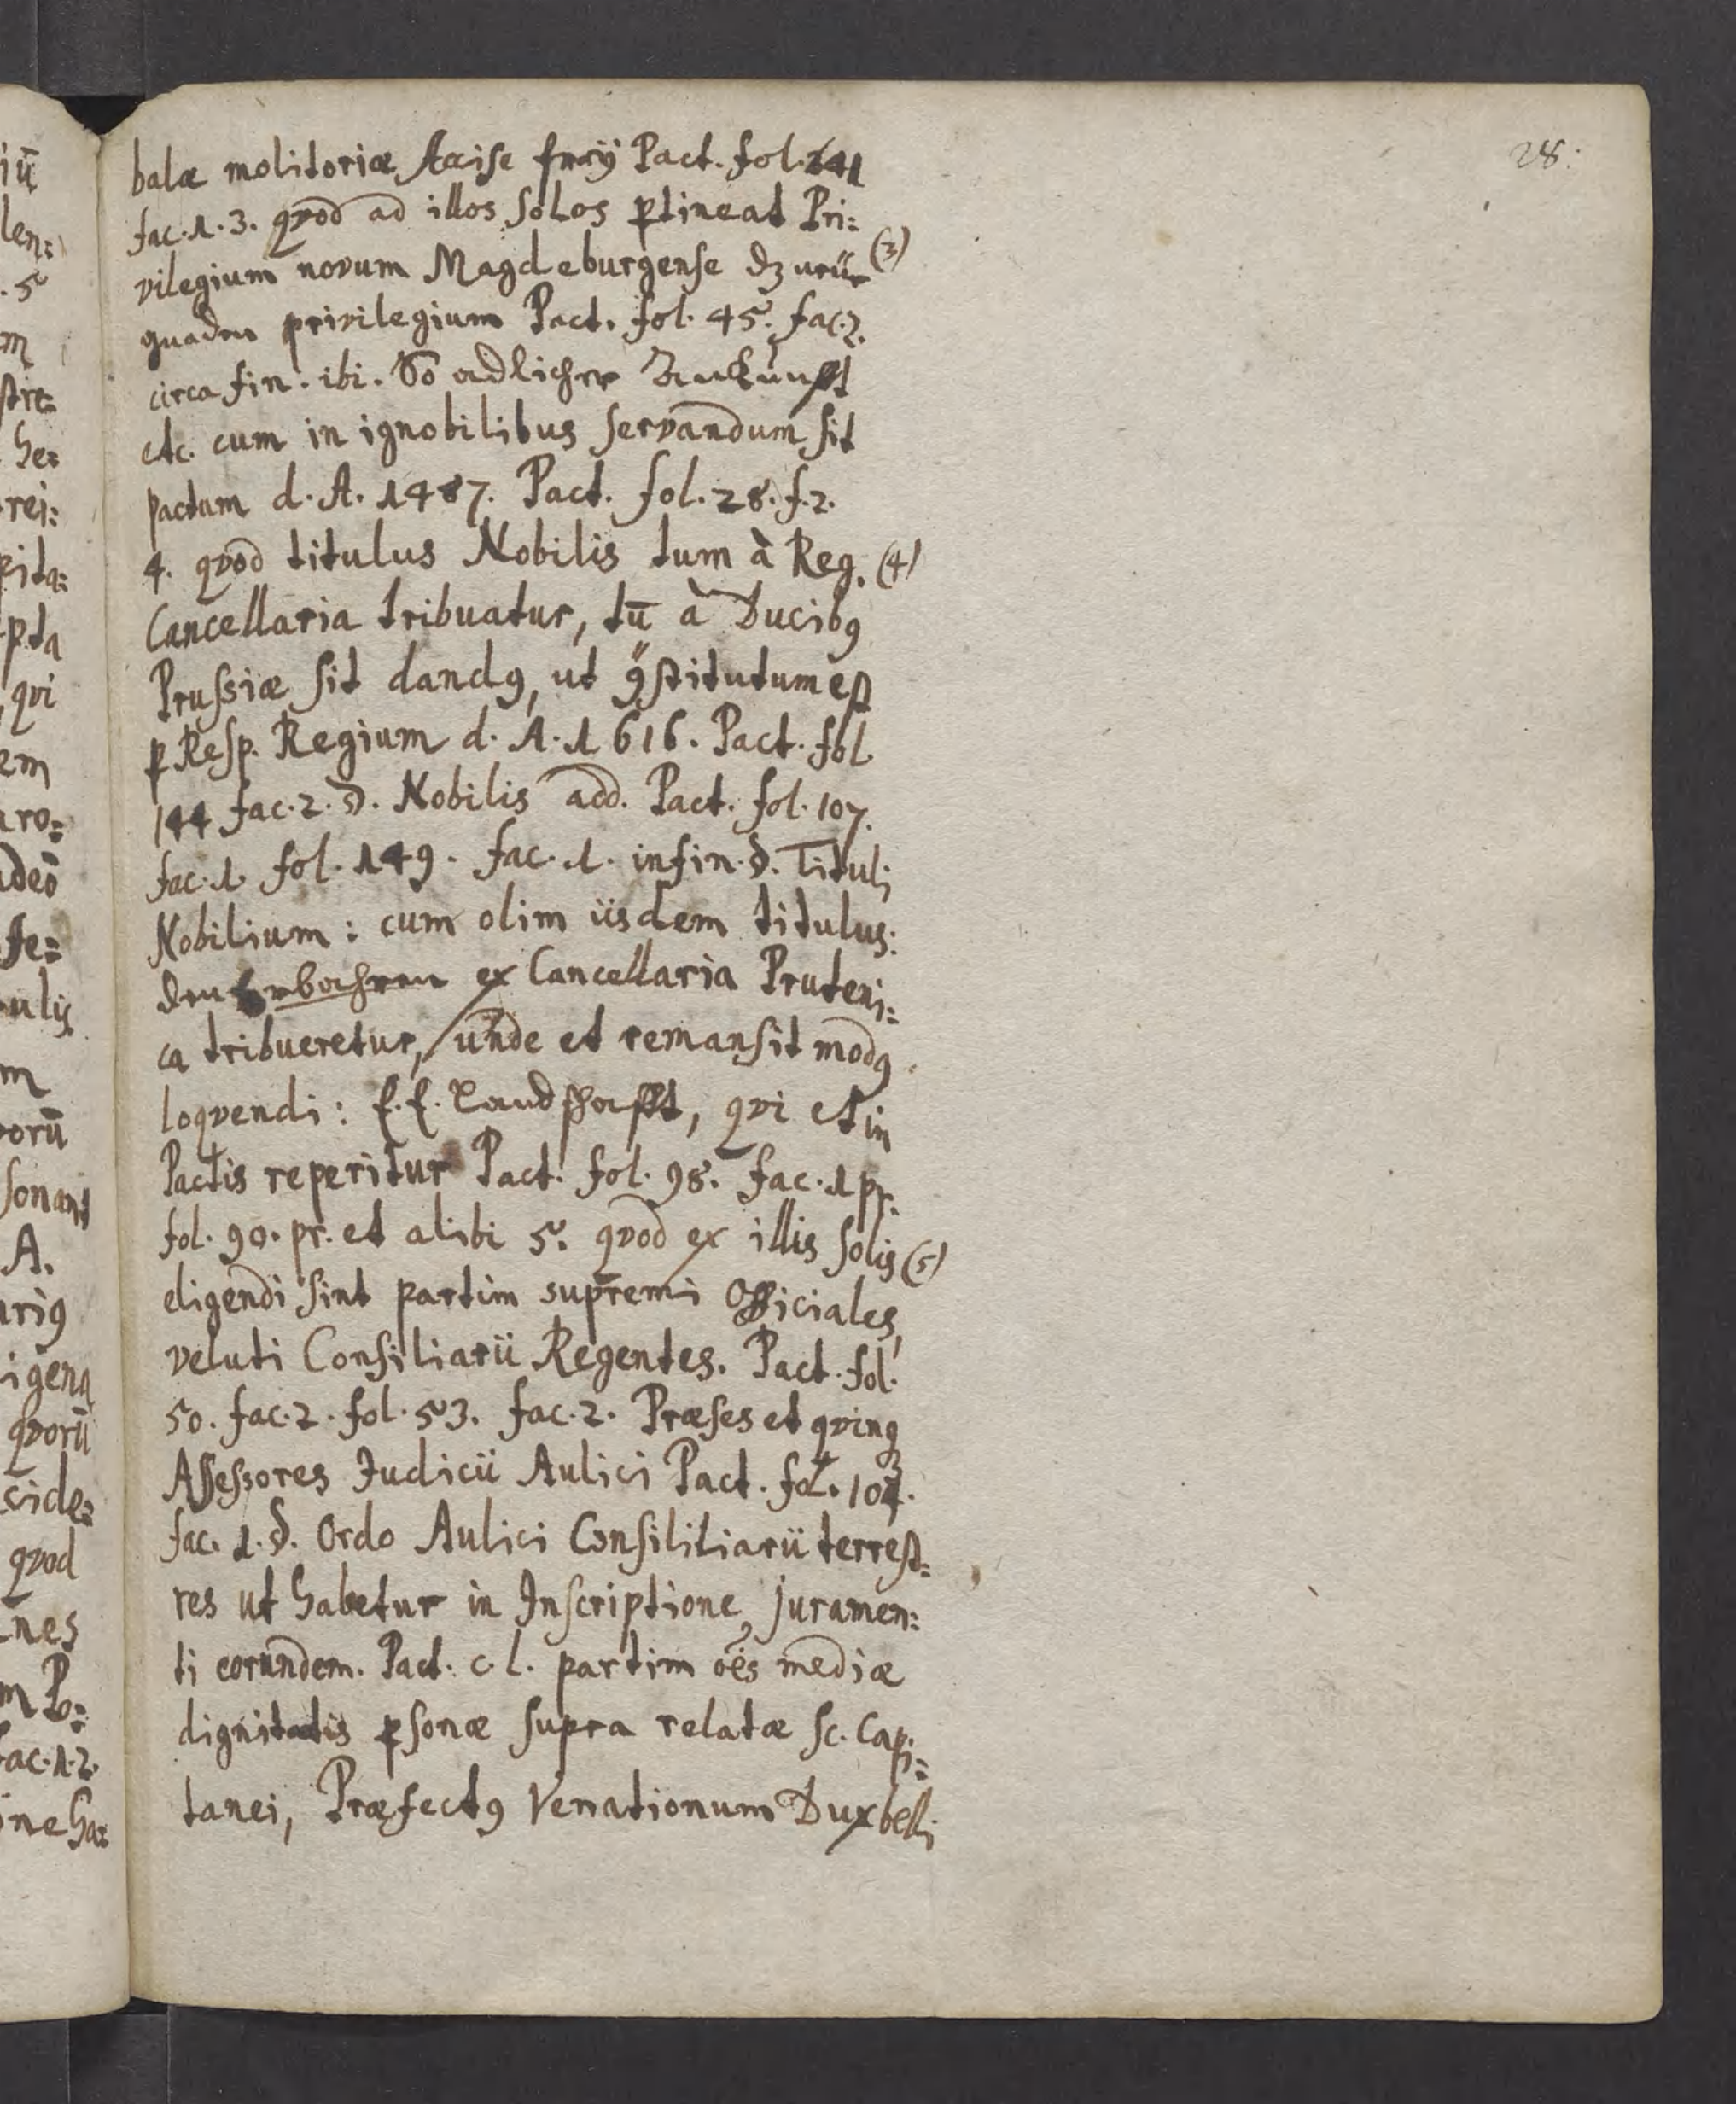 28.
balæ molitoriæ Accise freÿ Pact. fol. 141
fac. 1. 3. qvod ad illos solos ꝑtineat Pri=
vilegium novum Magdeburgense dz neüe (3)
gnaden privilegium Pact. fol. 45. fac. 2.
circa fin. ibi. So adlicher Ankunfft
etc. cum in ignobilibus servandum sit
pactum d. A. 1487. Pact. fol. 28. f. 2.
4. qvod titulus Nobilis tum à Reg. (4)
Cancellaria tribuatur, tū à Ducibꝰ
Prussiæ sit dandꝰ, ut ꝯstitutum est
ꝑ Resp. Regium d. A. 1616. Pact. fol.
144 fac. 2. §. Nobilis add. Pact. fol. 107.
fac. 1. fol. 149. fac. 1. in fin. §. Tituli
Nobilium: cum olim iisdem titulus:
den Erbahren ex Cancellaria Pruteni=
ca tribueretur, unde et remansit modꝰ
loqvendi: E. E. Landschafft, qvi et in
Pactis reperitur Pact. fol. 98. fac. 1 pr.
fol. 90. pr. et alibi 5. qvod ex illis solis (5)
eligendi sint partim supremi Officiales,
veluti Consiliarii Regentes. Pact. fol.
50. fac. 2. fol. 53. fac. 2. Præses et qvinqꝫ
Assessores Judicii Aulici Pact. fol.
fac. 1. §. Ordo Aulici Consililiarii terrest=
res ut habetur in Inscriptione juramen=
ti eorundem. Pact. c. l. partim oēs mediæ
dignitatis ꝑsonæ supra relatæ sc. Capi=
tanei, Præfectꝰ Venationum Dux belli